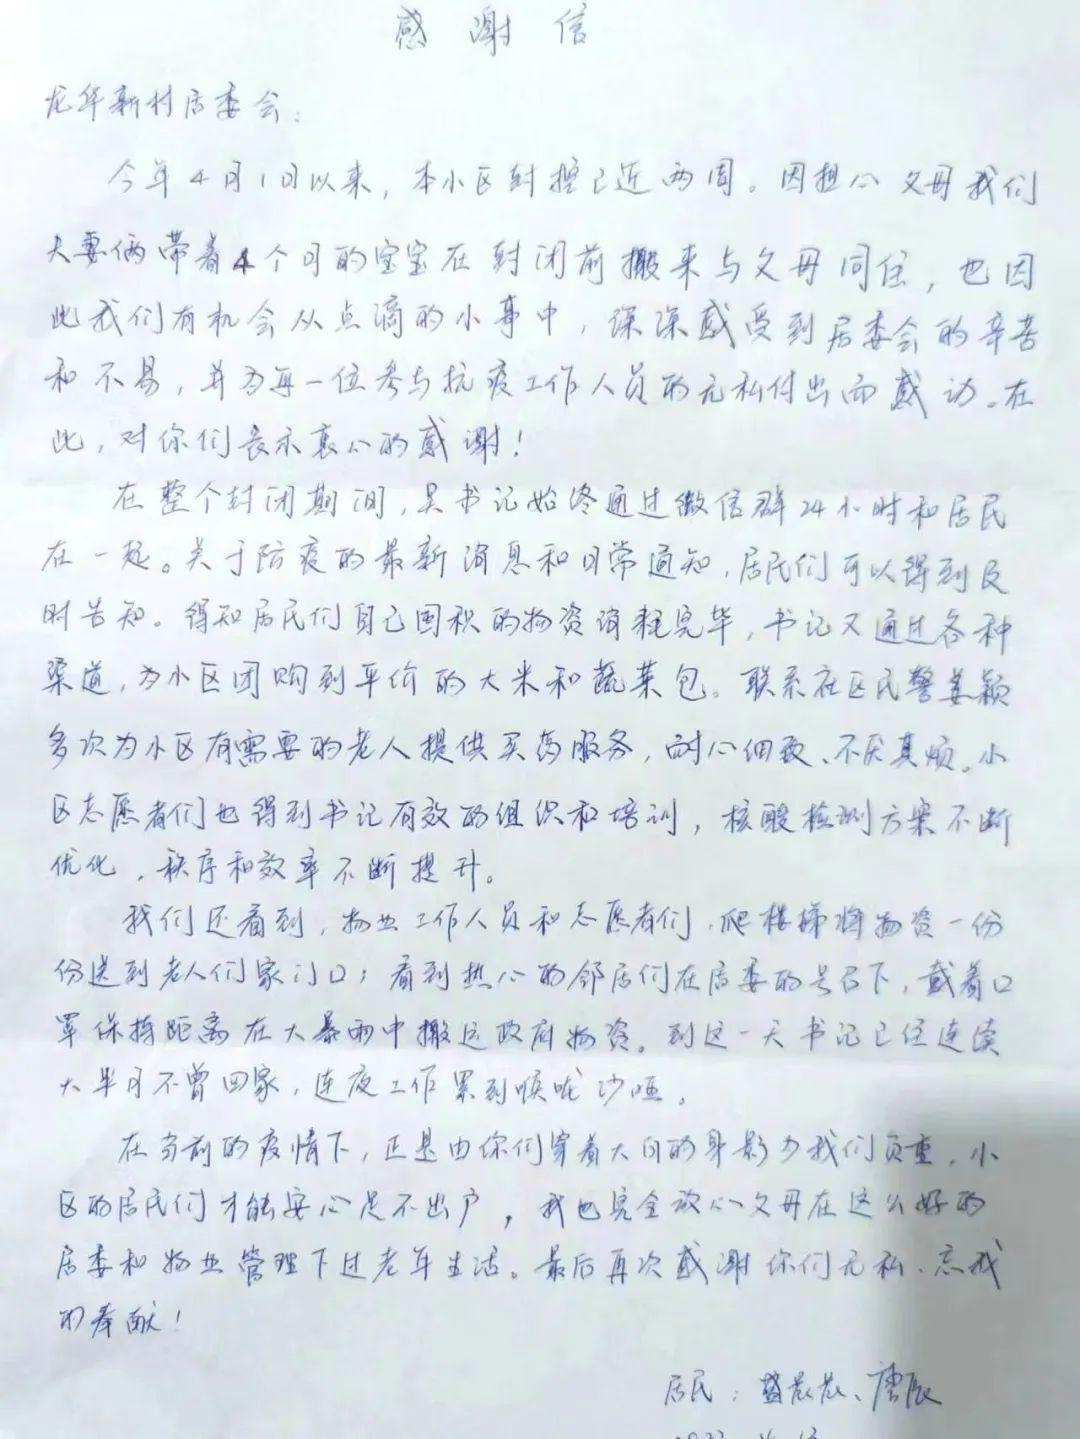 感谢信
龙华新村居委会：
今年4月1日以来，本小区封控已近两周。因担心父母我们
夫妻俩带着4个月的宝宝在封闭前搬来与父母同住，也因
此我们有机会从点滴的小事中，深深感受到居委会的辛苦
和不易，并为每一位参与抗疫工作人员的无私付出而感动。在
此，对你们表示衷心的感谢！
在整个封闭期间，吴书记始终通过微信群24小时和居民
在一起。关于防疫的最新消息和日常通知，居民们可以得到及
时告知。得知居民们自己囤积的物资消耗完毕，书记又通过各种
渠道，为小区团购到平价的大米和蔬菜包。联系社区民警姜颖
多次为小区有需要的老人提供买药服务，耐心细致、不厌其烦。小
区志愿者们也得到书记有效的组织和培训，核酸检测方案不断
优化，秩序和效率不断提升。
我们还看到，物业工作人员和志愿者们，爬楼梯将物资一份
份送到老人们家门口；看到热心的邻居们在居委的号召下，戴着口
罩保持距离在大暴雨中搬运政府物资。到这一天书记已经连续
大半月不曾回家，连夜工作累到喉咙沙哑。
在当前的疫情下，正是由你们穿着大白的身影为我们负重，小
区的居民们才能安心足不出户，我也完全放心父母在这么好的
居委和物业管理下过老年生活。最后再次感谢你们无私、忘我
的奉献！
居民：盛晨晨、唐辰